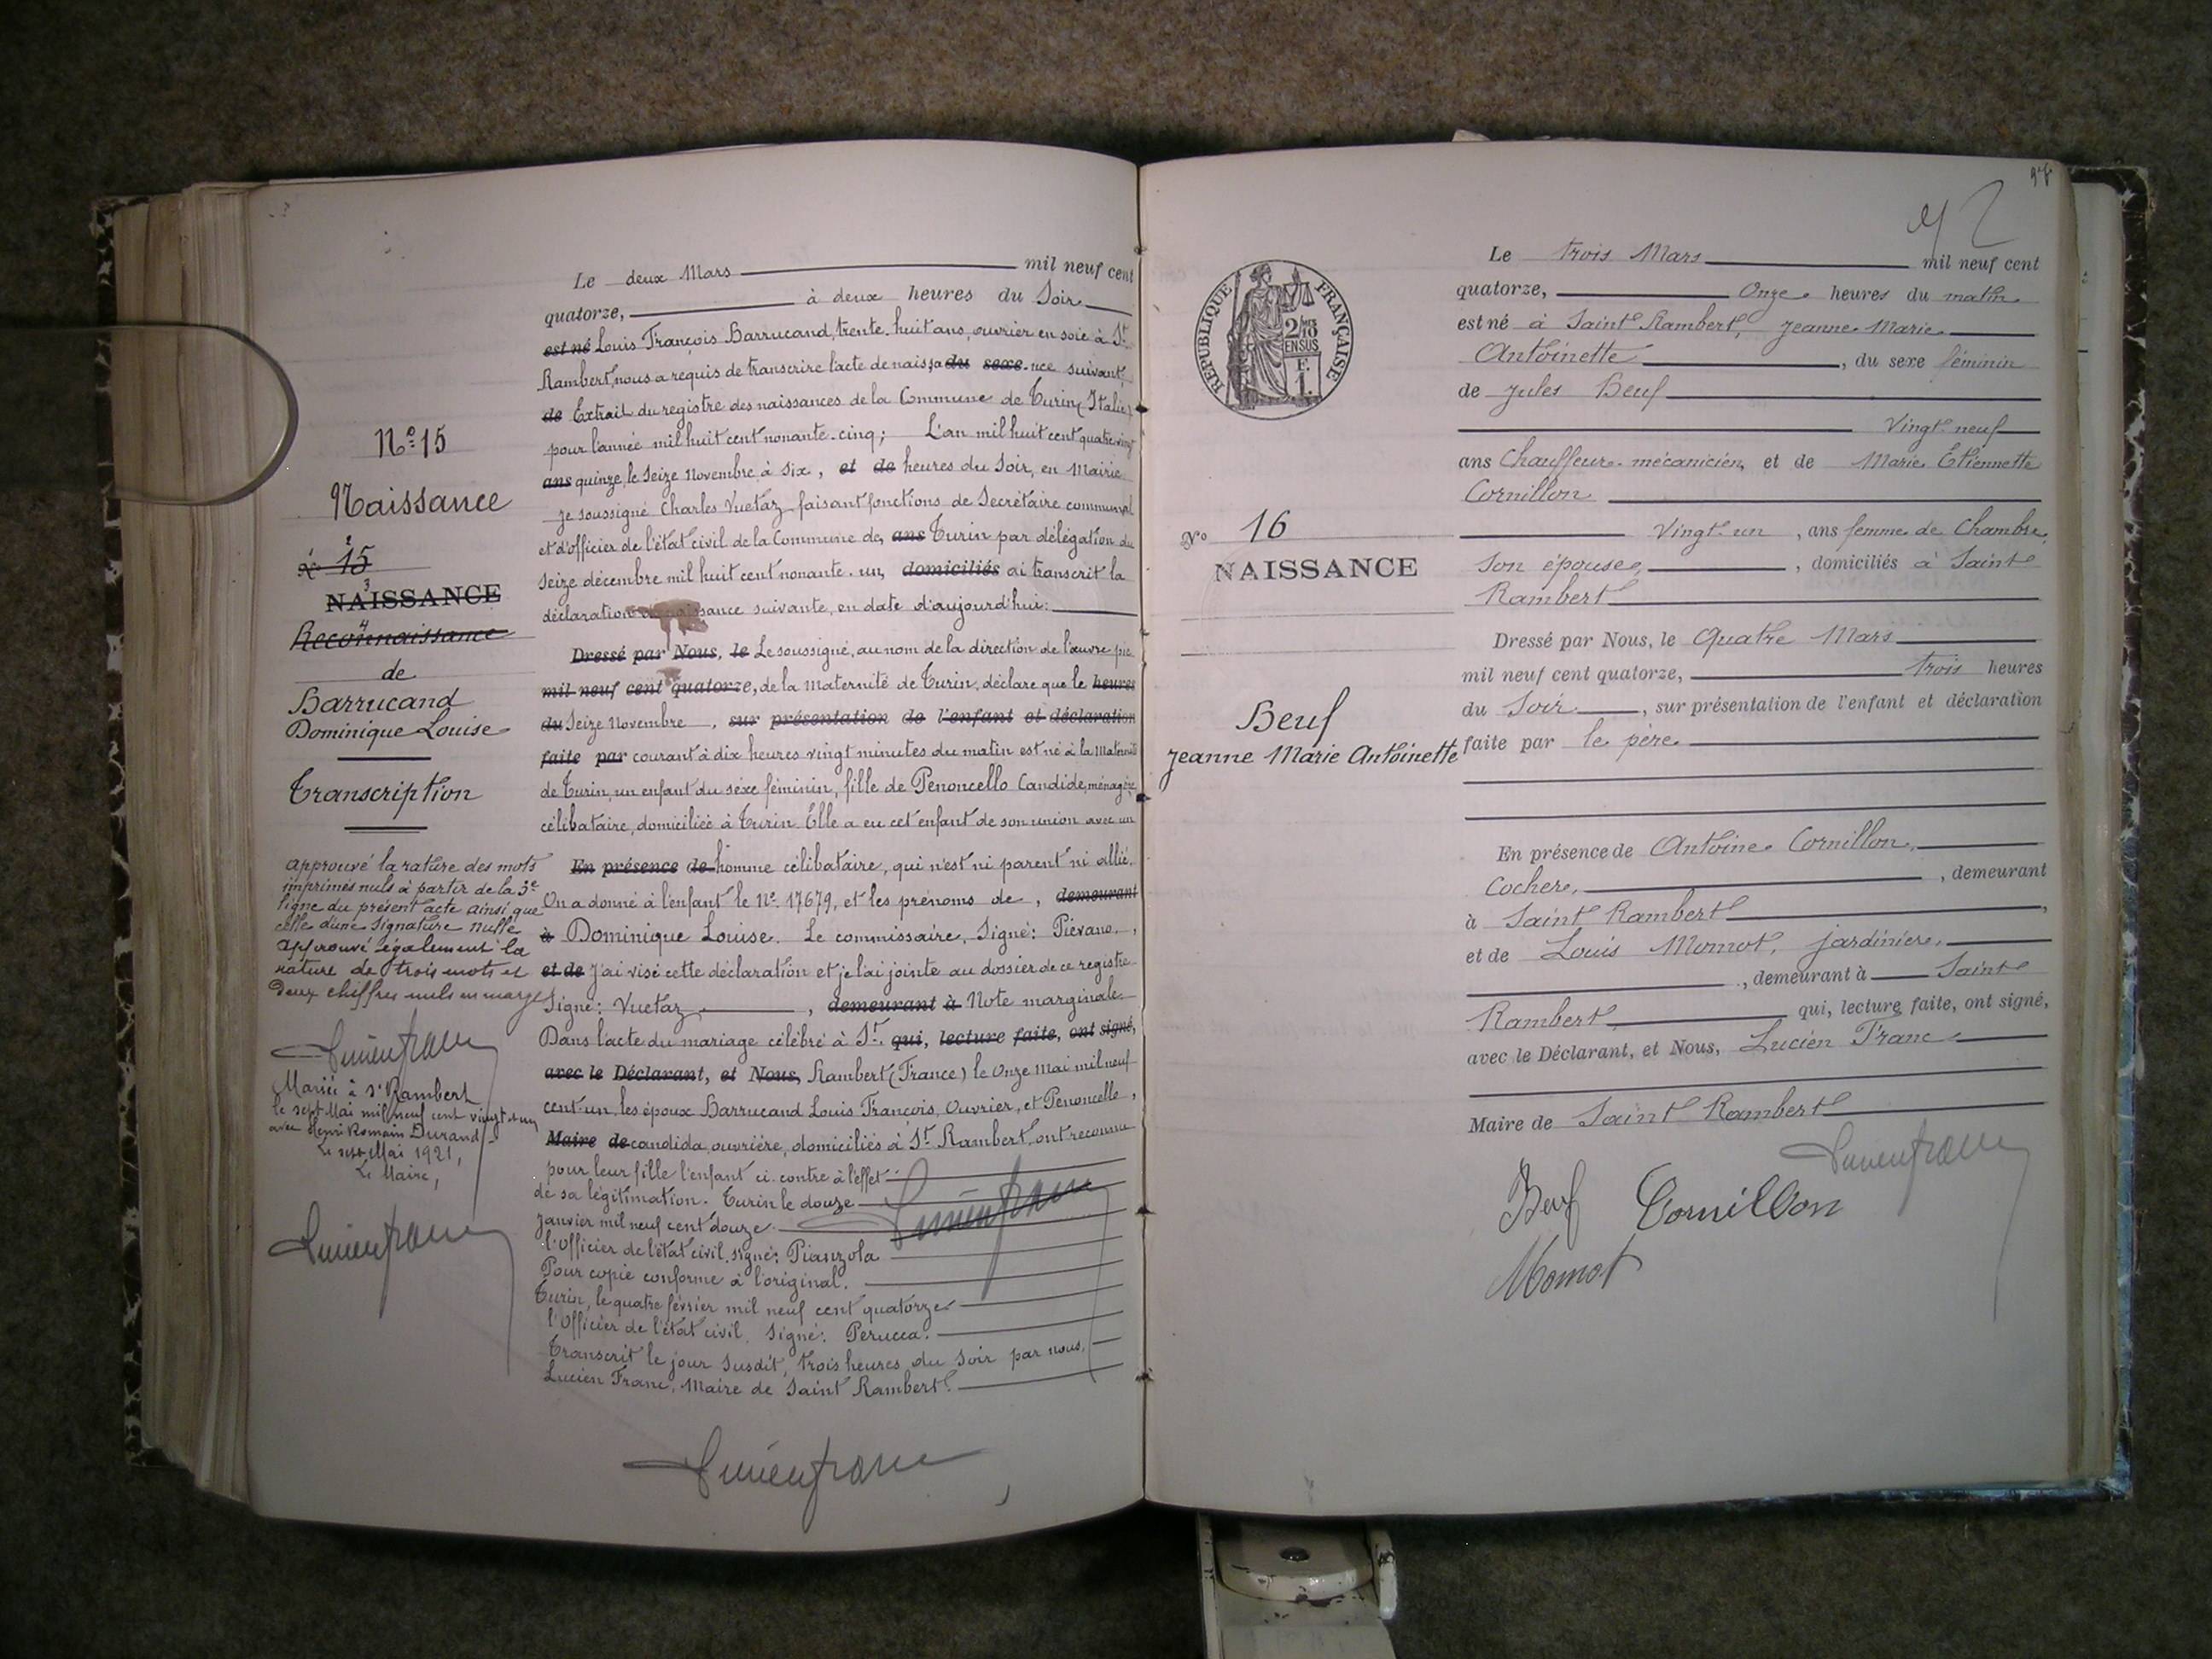 N° 15
Naissance
N° 15
NAISSANCE
Reconnaissance
de
Barrucand
Dominique Louise
Transcription
Approuvé la rature des mots
imprimés nuls à partir de la 3e
ligne du présent acte ainsi que
celle d'une signature nulle
approuvé également la
rature de trois mots et
deux chiffres nuls en marge
Lucien Franc
Mariée à St Rambert
le sept Mai mil neuf cent vingt et un
avec Henri Romain Durand
Le sept Mai 1921,
Le Maire,
Lucien Franc
Le deux Mars mil neuf cent
quatorze, à deux heures du Soir
est né Louis François Barrucand, trente-huit ans, ouvrier en soie à St
Rambert, nous a requis de transcrire l'acte de naissa du sexe -nce suivant:
de Extrait du registre des naissances de la Commune de Turin (Italie)
pour l'année mil huit cent nonante-cinq; L'an mil huit cent quatre vingt
ans quinze, le Seize Novembre à six, et de heures du Soir, en Mairie
Je soussigné Charles Vuetaz faisant fonctions de Secrétaire communal
et d'officier de l'état civil de la Commune de, ans Turin par délégation du
Seize décembre mil huit cent nonante-un, domiciliés ai transcrit la
déclaration de naissance suivante, en date d'aujourd'hui:
Dressé par Nous, le Le soussigné, au nom de la direction de l'œuvre pie
mil neuf cent quatorze, de la Maternité de Turin, déclare que le heures
du Seize Novembre, sur présentation de l'enfant et déclaration
faite par courant à dix heures vingt minutes du matin est né à la Maternité
de Turin, un enfant du sexe féminin, fille de Penoncello Candide, ménagère,
célibataire, domiciliée à Turin. Elle a eu cet enfant de son union avec un
En présence de homme célibataire, qui n'est ni parent ni allié.
On a donné à l'enfant le N° 17679, et les prénoms de, demeurant
à Dominique Louise. Le commissaire, Signé: Piévano,
et de J'ai visé cette déclaration et je l'ai jointe au dossier de ce registre
Signé: Vuetaz, demeurant à Note marginale
Dans l'acte du mariage célébré à St. qui, lecture faite, ont signé,
avec le Déclarant, et Nous, Rambert (France) le Onze Mai mil neuf
cent-un, les époux Barrucand Louis François, Ouvrier, et Penoncelle,
Maire de candida, ouvrière, domiciliés à St Rambert, ont reconnu
pour leur fille l'enfant ci-contre à l'effet
de sa légitimation. Turin le douze
Janvier mil neuf cent douze.
l'Officier de l'état civil, signé: Pianzola
Pour copie conforme à l'original.
Turin, le quatre février mil neuf cent quatorze
l'Officier de l'état civil. Signé: Perucca.
Transcrit le jour susdit, trois heures du Soir par nous,
Lucien Franc, Maire de Saint Rambert.
Lucien Franc
Lucien Franc
98
REPUBLIQUE FRANÇAISE
2/10
EN SUS
F.
1.
N° 16
NAISSANCE
Beuf
Jeanne Marie Antoinette
Le trois Mars mil neuf cent
quatorze, Onze heures du matin
est né à Saint Rambert, Jeanne Marie
Antoinette, du sexe féminin
de Jules Beuf
Vingt-neuf
ans Chauffeur-mécanicien, et de Marie Etiennette
Cornillon
Vingt-un, ans femme de Chambre,
Son épouse, domiciliés à Saint
Rambert
Dressé par Nous, le Quatre Mars
mil neuf cent quatorze, trois heures
du Soir, sur présentation de l'enfant et déclaration
faite par le père
En présence de Antoine Cornillon,
Cocher, demeurant
à Saint Rambert,
et de Louis Momot, jardinier,
, demeurant à Saint
Rambert, qui, lecture faite, ont signé,
avec le Déclarant, et Nous, Lucien Franc
Maire de Saint Rambert
Lucien Franc
Beuf Cornillon
Momot